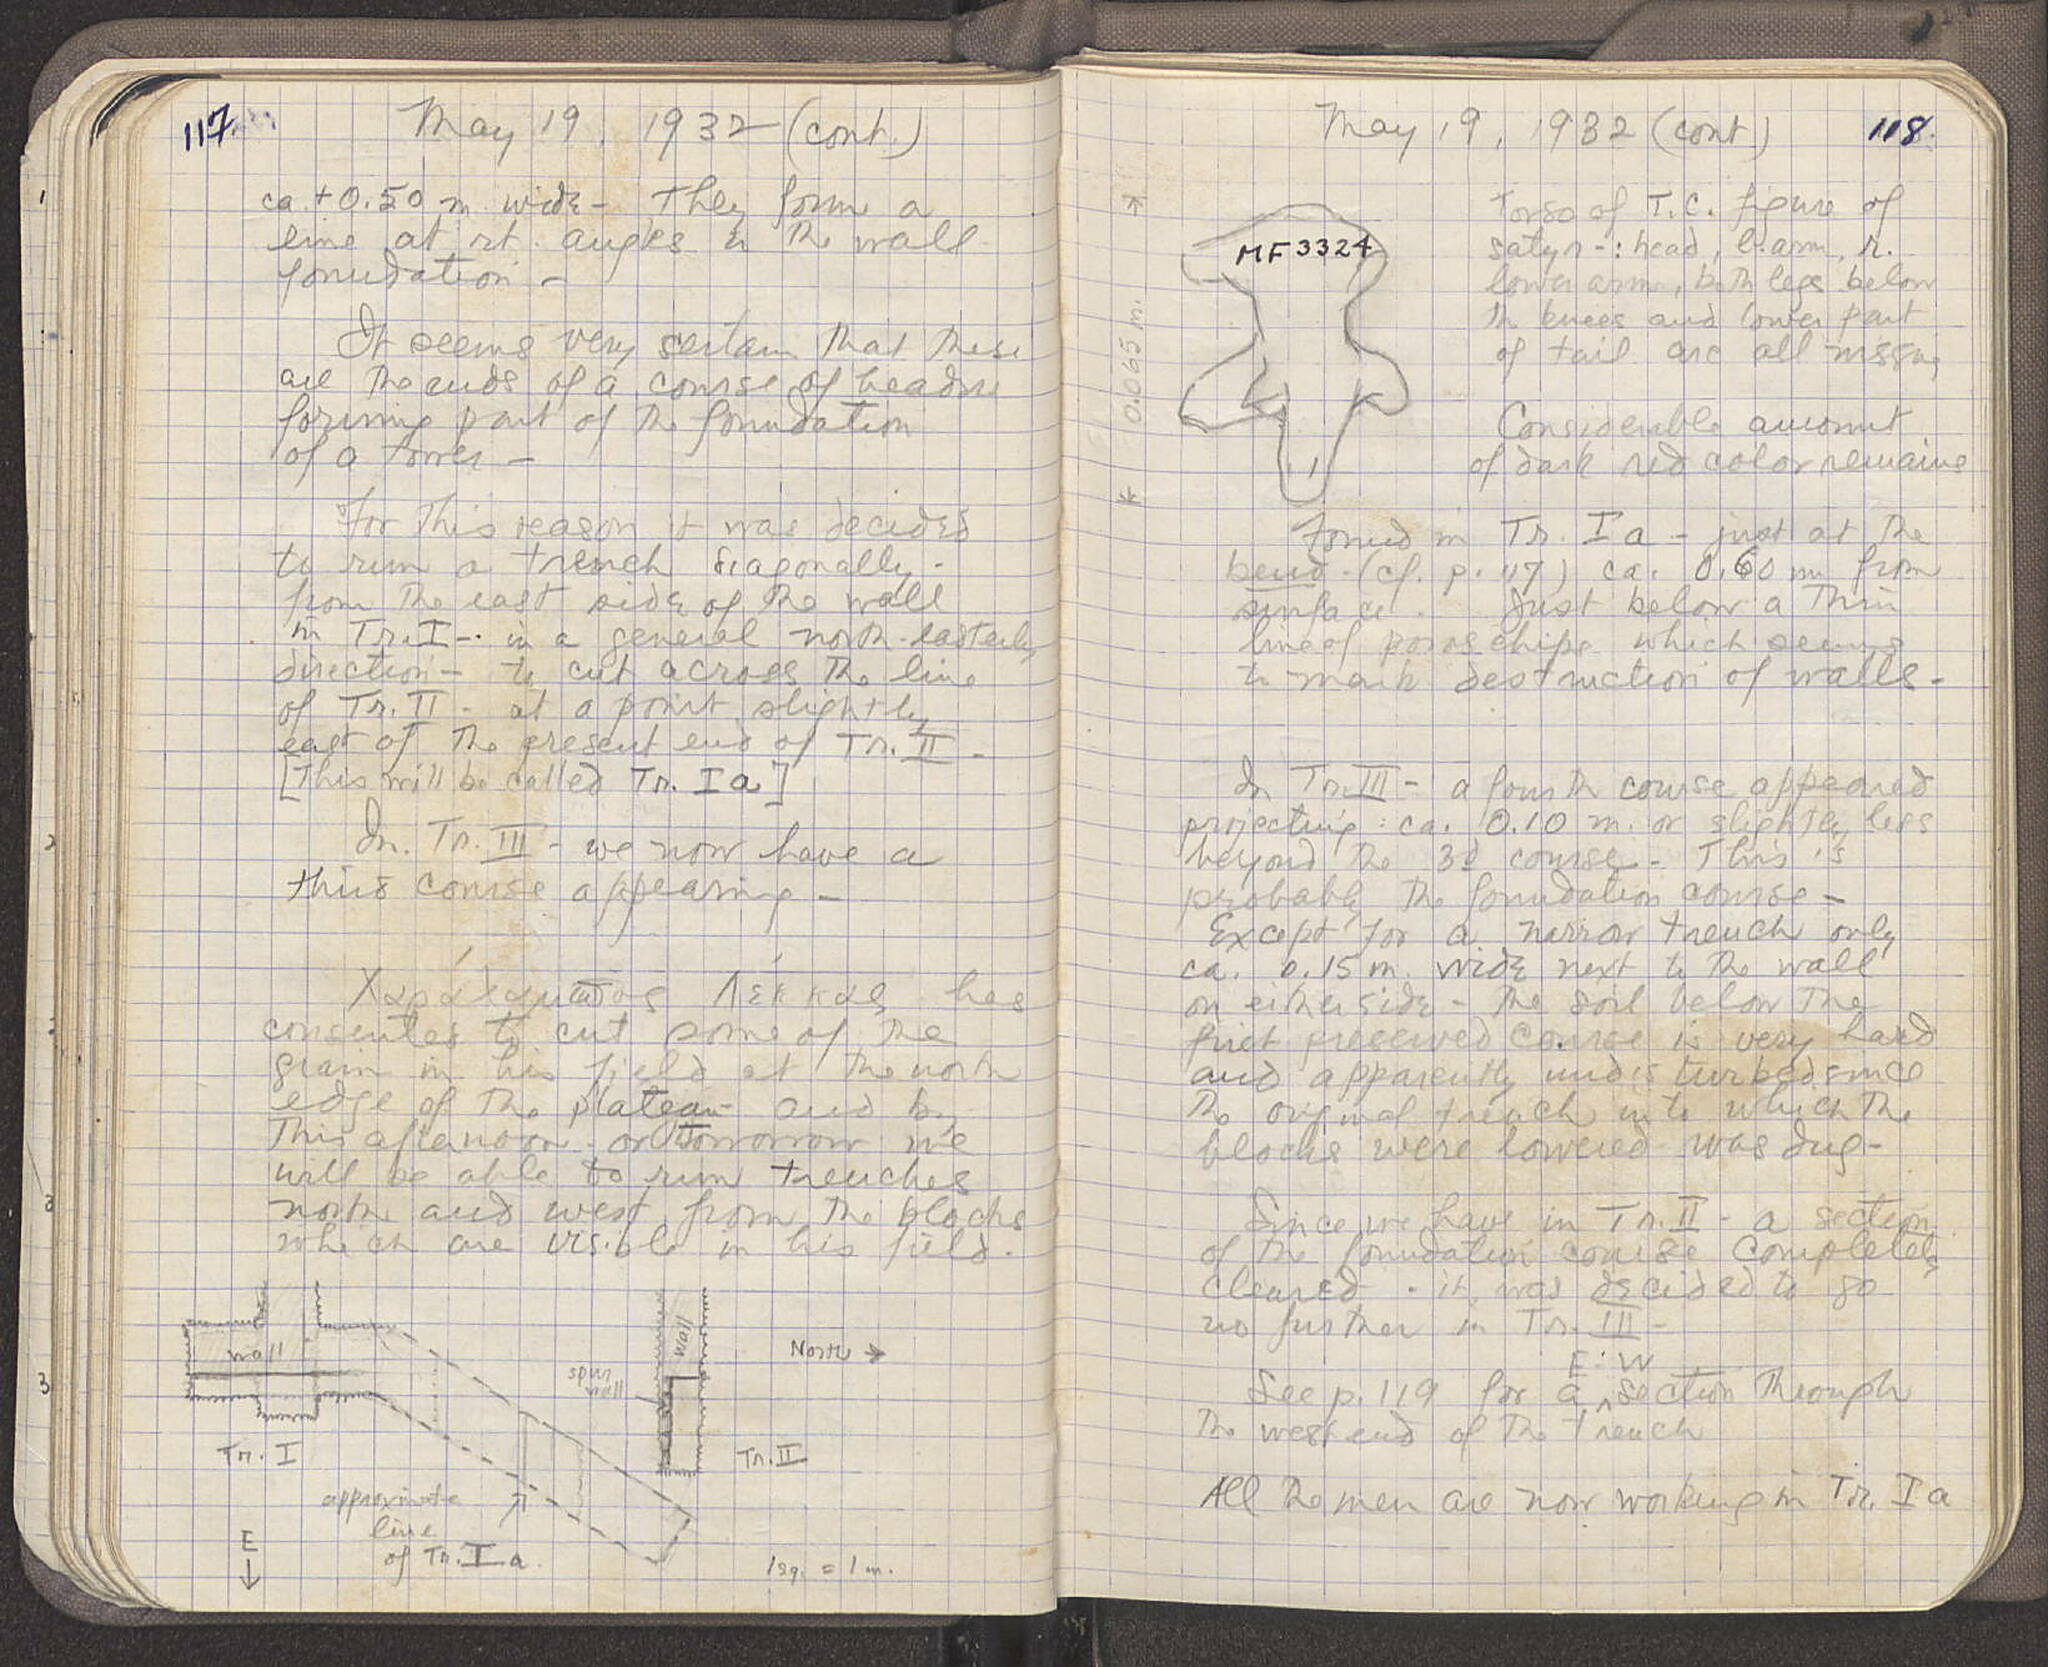 117
May 19, 1932 (cont.)
ca. + 0.50 m wide - They form a
line at rt. angles to the wall
foundation -
It seems very certain that these
are the ends of a course of headers
forming part of the foundation
of a tower -
For this reason it was decided
to run a trench diagonally -
from the east side of the wall
in Tr. I - in a general north-easterly
direction - to cut across the line
of Tr. II - at a point slightly
east of the present end of Tr. II -
[This will be called Tr. I a]
In Tr. III - we now have a
third course appearing -
Χαράλαμπος Λέκκας has
consented to cut some of the
grain in his field at the north
edge of the plateau and by
this afternoon or tomorrow we
will be able to run trenches
north and west from the blocks
which are visible in his field.
wall
spur
wall
wall
North →
Tr. I
Tr. II
approximate
line
of Tr. I a.
E
↓
1 sq. = 1 m.
118
May 19, 1932 (cont)
MF 3324
0.065 m.
Torso of T.C. figure of
satyr -: head, l. arm, r.
lower arm, both legs below
the knees and lower part
of tail are all missing
Considerable amount
of dark red color remains
Found in Tr. I a - just at the
bend - (cf. p. 117) ca. 0.60 m from
surface. Just below a thin
line of poros chips which seems
to mark destruction of walls -
In Tr. III - a fourth course appeared
projecting : ca. 0.10 m. or slightly less
beyond the 3d course - This is
probably the foundation course -
Except for a narrow trench only
ca. 0.15 m. wide next to the wall
on either side - the soil below the
first preserved course is very hard
and apparently undisturbed since
the original trench into which the
blocks were lowered was dug -
Since we have in Tr. II - a section
of the foundation course completely
cleared - it was decided to go
no further in Tr. III -
E-W
See p. 119 for a ^ section through
the west end of the trench
All the men are now working in Tr. I a
1
2
3
3